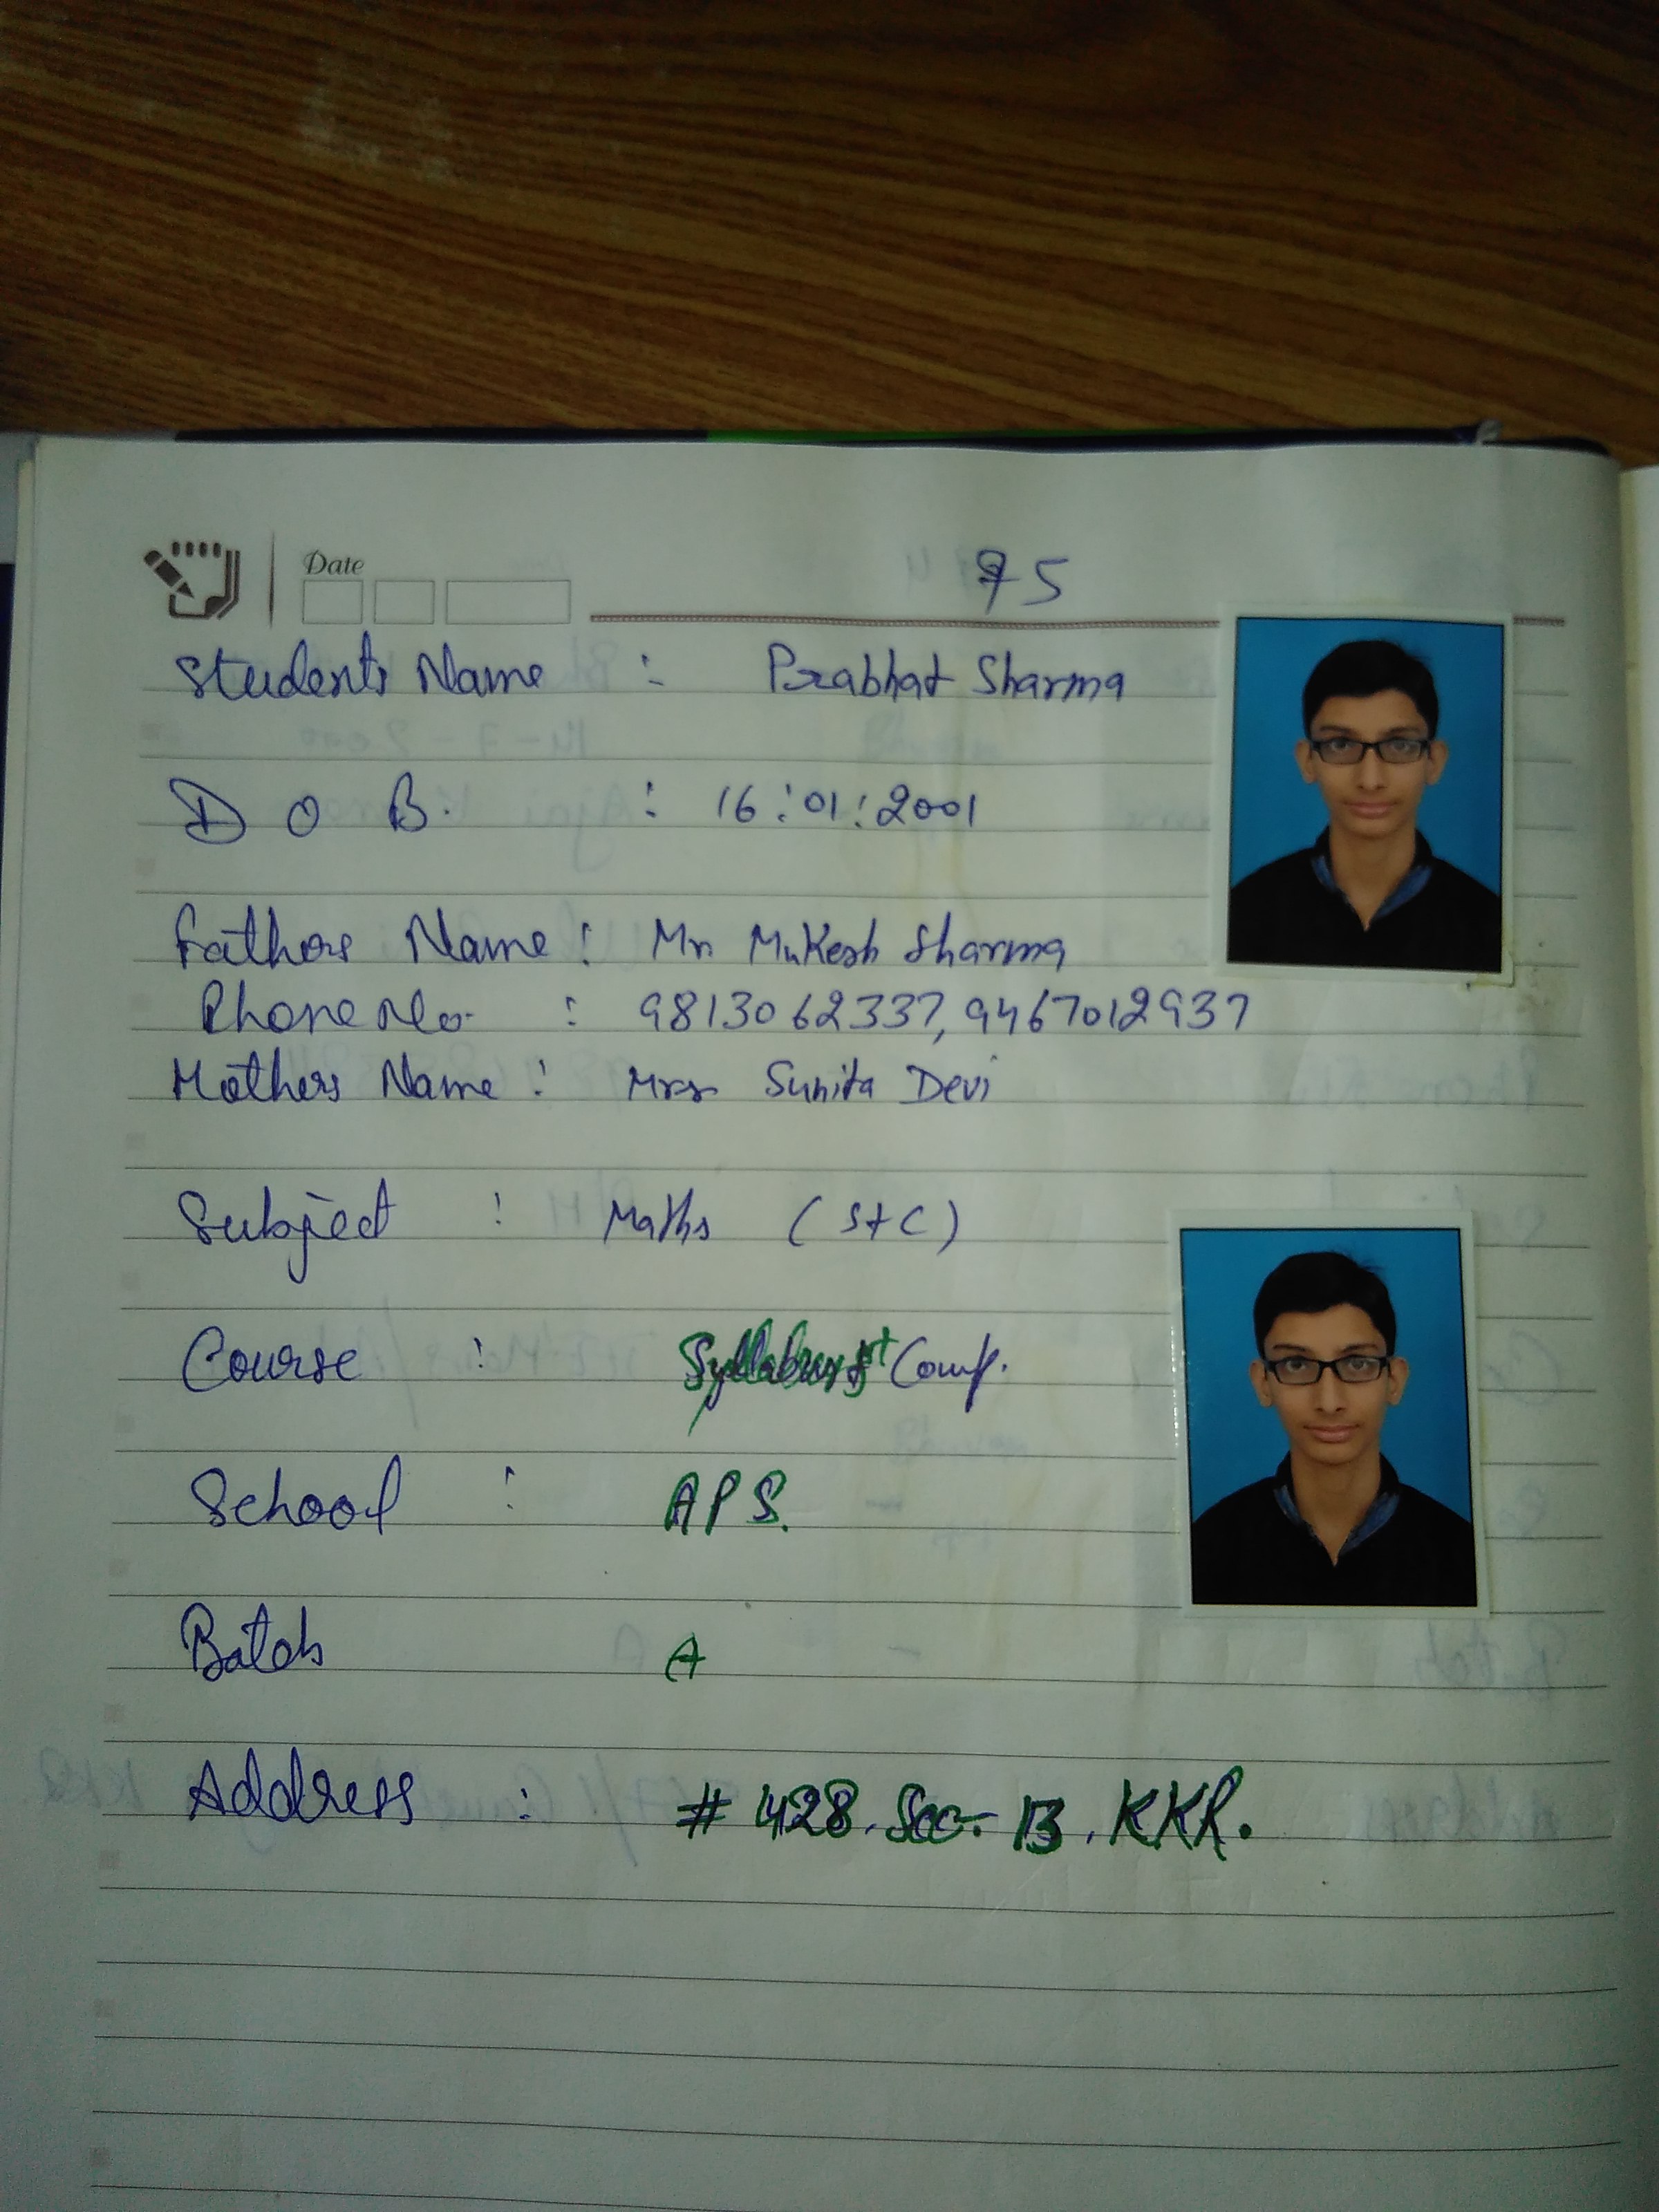 Date
75
Students Name : Prabhat Sharma
D O B. : 16:01:2001
Fathers Name : Mr. Mukesh Sharma
Phone No. : 9813062337, 9467012937
Mothers Name : Mrs Sunita Devi
Subject : Maths (S+C)
Course : Syllabus + Comp.
School : APS.
Batch A
Address : # 428. Sec- 13. KKR.